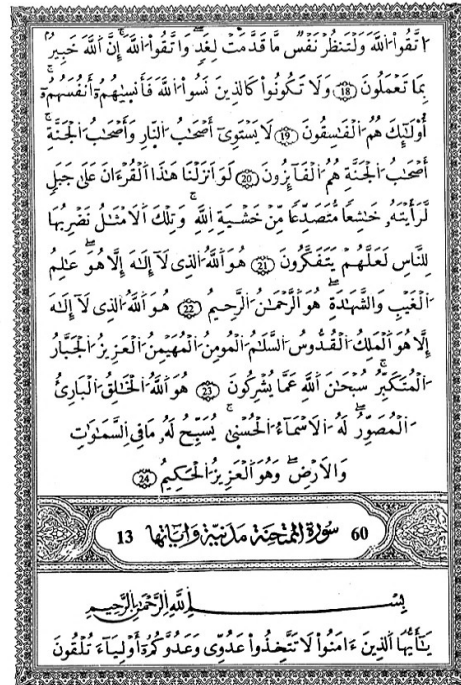 اَ۟تَّقُواْ اُ۬للَّهَ وَلْتَنظُرْ نَفْسٞ مَّا قَدَّمَتْ لِغَدٖۖ وَاتَّقُواْ اُ۬للَّهَۖ إِنَّ اَ۬للَّهَ خَبِيرُۢ
بِمَا تَعْمَلُونَۖ 18 وَلَا تَكُونُواْ كَالذِينَ نَسُواْ اُ۬للَّهَ فَأَنسٜيٰهُمُۥٓ أَنفُسَهُمُۥٓۖ
أُوْلَٰٓئِكَ هُمُ اُ۬لْفَٰسِقُونَۖ 19 لَا يَسْتَوِےٓ أَصْحَٰبُ اُ۬لنّ۪ارِ وَأَصْحَٰبُ اُ۬لْجَنَّةِۖ
أَصْحَٰبُ اُ۬لْجَنَّةِ هُمُ اُ۬لْفَآئِزُونَۖ 20 لَوَ اَنزَلْنَا هَٰذَا اَ۬لْقُرْءَانَ عَلَىٰ جَبَلٖ
لَّرَأَيْتَهُۥ خَٰشِعاٗ مُّتَصَدِّعاٗ مِّنْ خَشْيَةِ اِ۬للَّهِۖ وَتِلْكَ اَ۬لَامْثَٰلُ نَضْرِبُهَا
لِلنَّاسِ لَعَلَّهُمْ يَتَفَكَّرُونَۖ 21 هُوَ اَ۬للَّهُ اُ۬لذِے لَآ إِلَٰهَ إِلَّا هُوَۖ عَٰلِمُ
اُ۬لْغَيْبِ وَالشَّهَٰدَةِۖ هُوَ اَ۬لرَّحْمَٰنُ اُ۬لرَّحِيمُۖ 22 هُوَ اَ۬للَّهُ اُ۬لذِے لَآ إِلَٰهَ
إِلَّا هُوَ اَ۬لْمَلِكُ اُ۬لْقُدُّوسُ اُ۬لسَّلَٰمُ اُ۬لْمُومِنُ اُ۬لْمُهَيْمِنُ اُ۬لْعَزِيزُ اُ۬لْجَبَّارُ
اُ۬لْمُتَكَبِّرُۖ سُبْحَٰنَ اَ۬للَّهِ عَمَّا يُشْرِكُونَۖ 23 هُوَ اَ۬للَّهُ اُ۬لْخَٰلِقُ اُ۬لْبَارِئُ
اُ۬لْمُصَوِّرُۖ لَهُ اُ۬لَاسْمَآءُ اُ۬لْحُسْنٜيٰۖ يُسَبِّحُ لَهُۥ مَا فِے اِ۬لسَّمَٰوَٰتِ
وَالَارْضِۖ وَهُوَ اَ۬لْعَزِيزُ اُ۬لْحَكِيمُۖ 24
60 سورة الممتحنة مدنية وآياتها 13
بِسْمِ اِ۬للَّهِ اِ۬لرَّحْمَٰنِ اِ۬لرَّحِيمِ
يَٰٓأَيُّهَا اَ۬لذِينَ ءَامَنُواْ لَا تَتَّخِذُواْ عَدُوِّے وَعَدُوَّكُمُۥٓ أَوْلِيَآءَ تُلْقُونَ